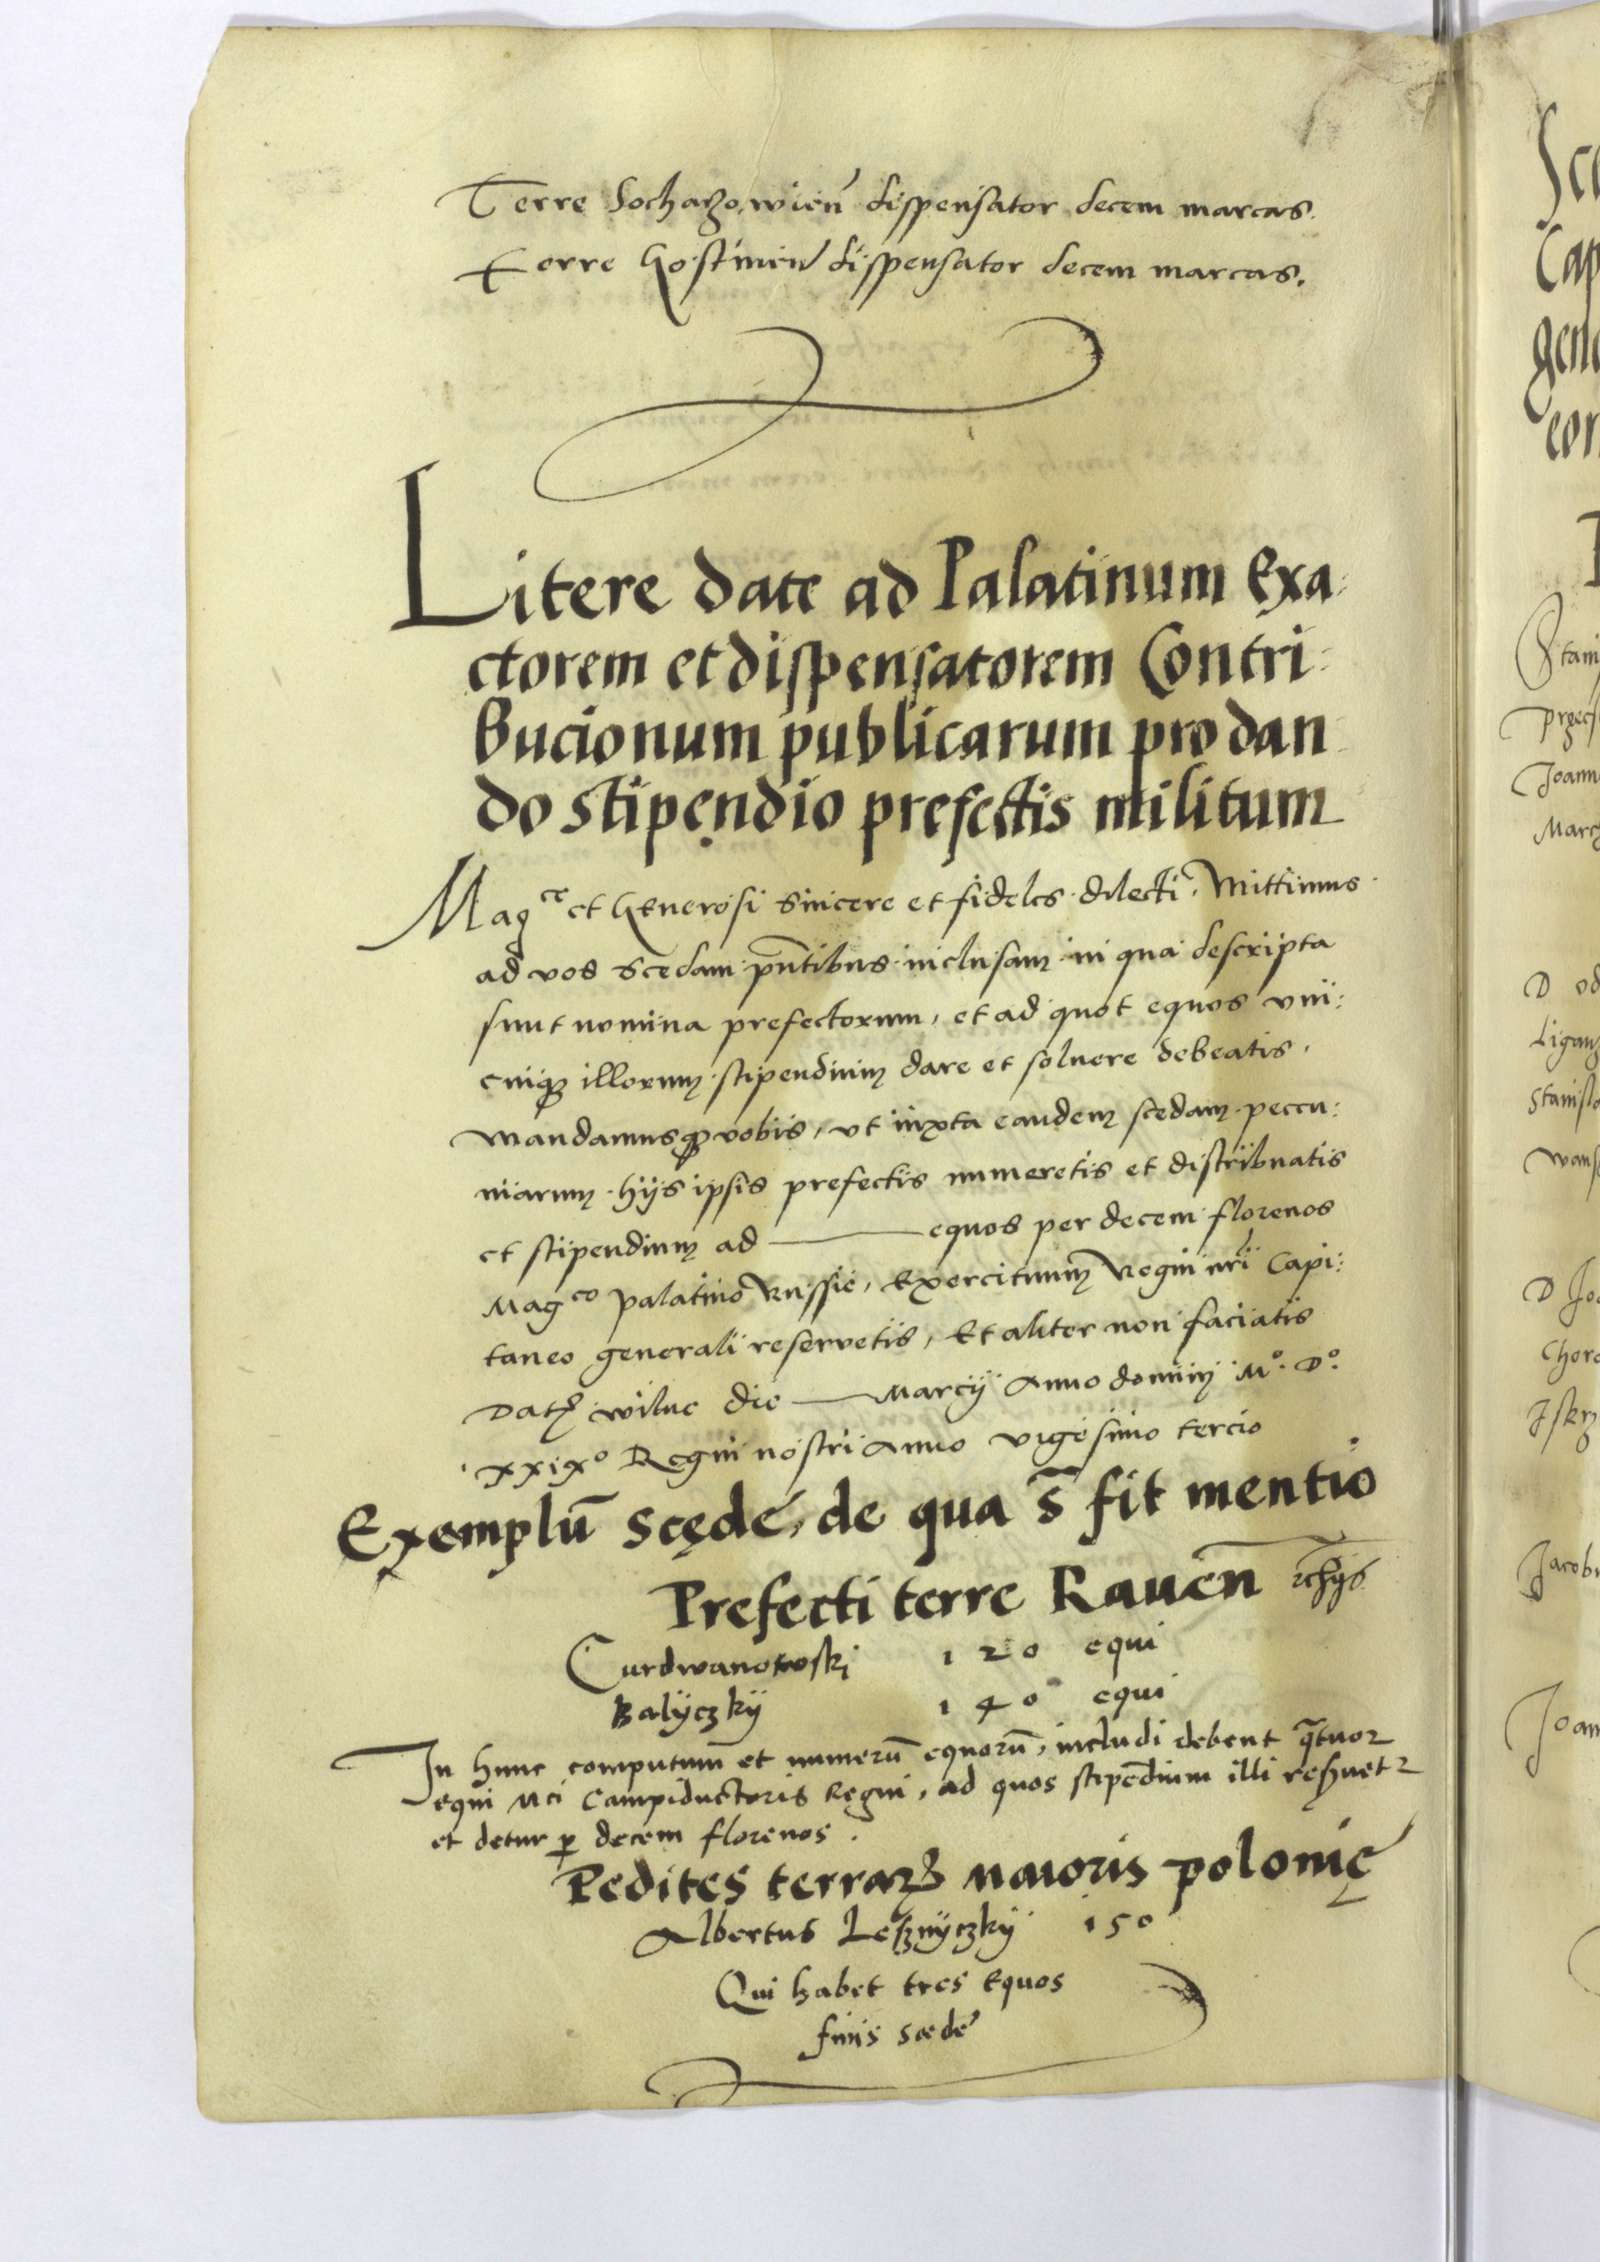 Terre Sochaczowien̄ dispensator decem marcas.
Terre Gostinen̄ dispensator decem marcas.
Litere date ad Palatinum Exa:
ctorem et dispensatorem Contri:
bucionum publicarum pro dan
do stipendio prefectis militum
Mag^ce et Generosi Sincere et fideles dilecti, Mittimus
ad vos scedam pn̄tibus inclusam in qua descripta
sunt nomina prefectorum, et ad quot equos vni:
cuiqꝫ illorum stipendium dare et soluere debeatis,
Mandamusqꝫ vobis, vt iuxta eandem scedam peccu:
niarum hijs ipsis prefectis numeretis et distribuatis
et stipendium ad — equos per decem florenos
Mag^co palatino Russie, Exercituum Regni nr̄i Capi:
taneo generali reservetis, Et aliter non faciatis
Datꝫ wilne die — Marcij Anno domini M°. D°.
xxix° Regni nostri Anno vigesimo tercio
Exemplū scęde, de qua s̄ fit mentio
Prefecti terre Rauen̄
Curdwanowski 120 equi
Balyczky 140 equi
In hunc computum et numerū equorū, includi debent q̄tuor
equi Mci Campiductoris Regni, ad quos stipendium illi res̄uetr
et detur ꝑ decem florenos.
Pedites terrarꝫ maioris polonię
Albertus Lesznyczky 150
Qui habet tres equos
finis scede
Stani
Joann
D od
Stanisla
D Jo
Jacobu
Joan